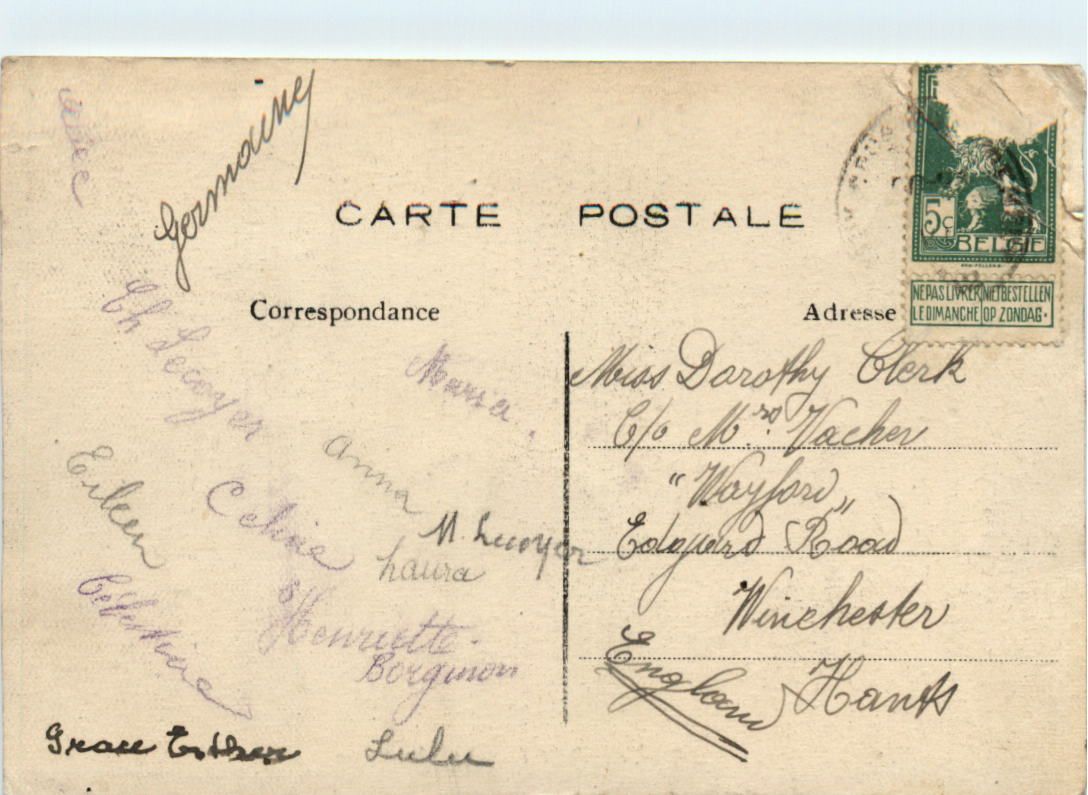 Germaine
CARTE POSTALE
5c
BELGIE
NE PAS LIVRER NIET BESTELLEN
LE DIMANCHE OP ZONDAG
Correspondance
Adresse
Ch Lecoyer
Maria.
Anna
Eileen
Celina
M. Lecoyer
Laura
Célestina
Henriette
Borginon
Grace Esther
Lulu
Miss Dorothy Clerk
C/o Mrs Vacher
"Wayford"
Edgard Road
Winchester
Hants
England